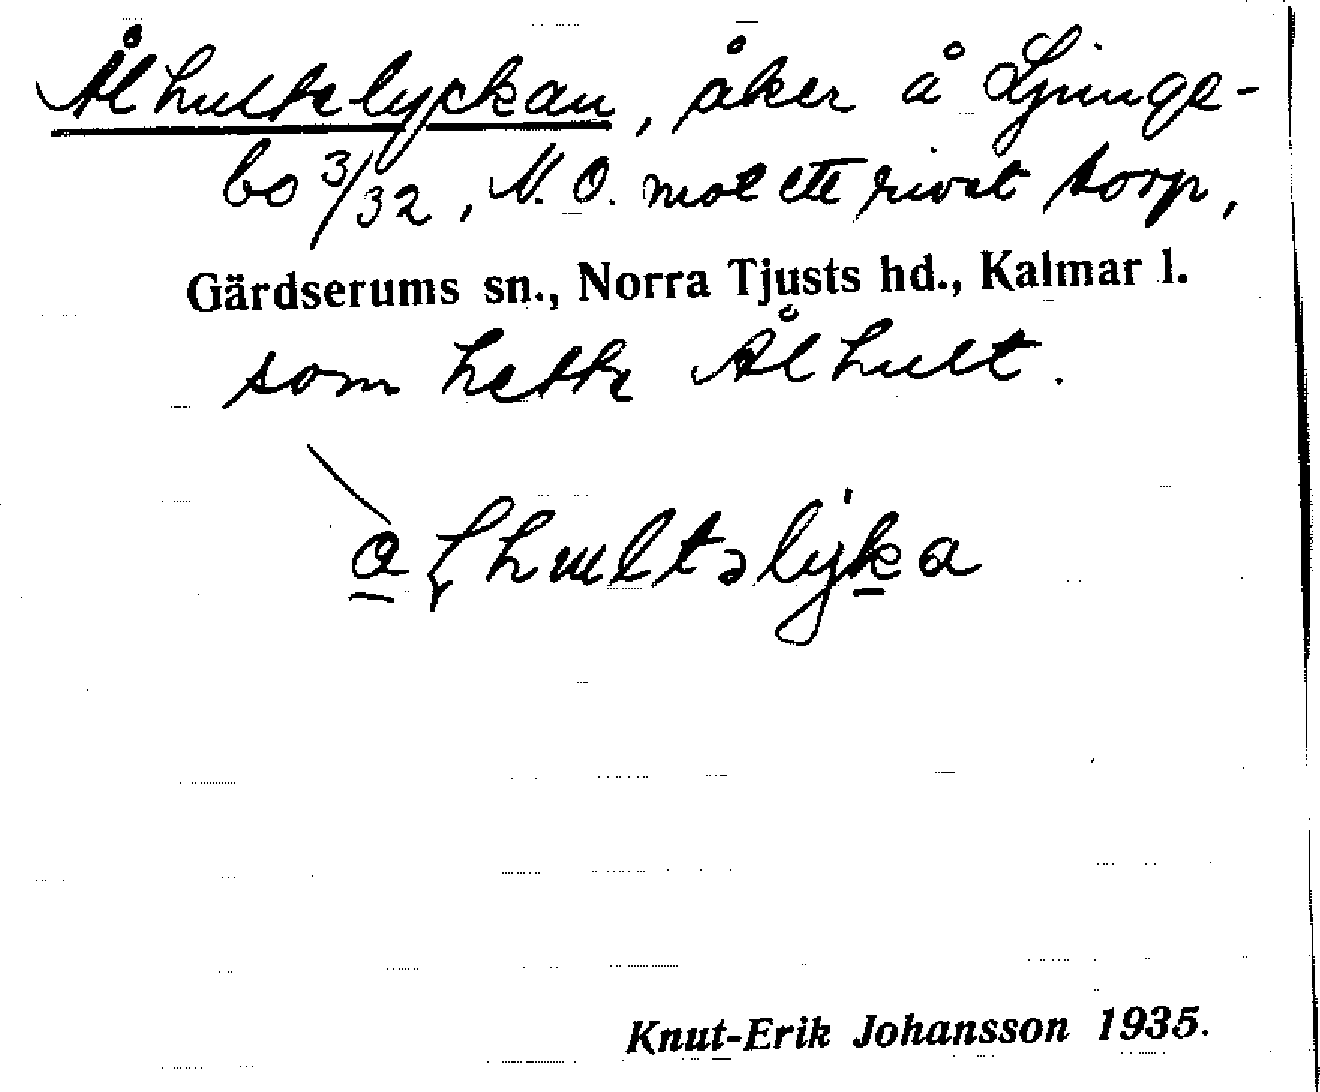 Ålhultelyckan, åker å Ljunge-
bo 3/32, N.O. mot ett rivet torp,
Gärdserums sn., Norra Tjusts hd., Kalmar l.
som hette Ålhult.
Knut-Erik Johansson 1935.